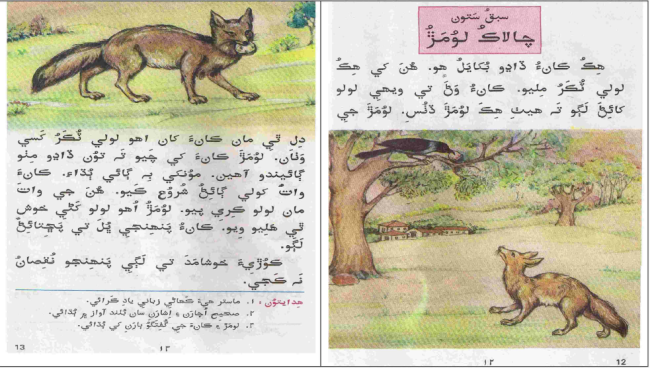 سبقُ سَتون
چالاڪُ لُومَڙُ
هِڪُ ڪانءُ ڏاڍو بُکايَلُ هو. هُنَ کي هِڪُ
لولي ٽُڪَرُ مِليو. ڪانءُ وَڻَ تي ويهي لولو
کائِڻُ لَڳو تَہ هيٺِ هِڪَ لُومَڙَ ڏِٺُسِ. لُومَڙَ جي
12
۱۲
دِلِ ٿي مان ڪانءَ کان اهو لولي ٽُڪَرُ کَسي
وَٺان. لُومَڙَ ڪانءَ کي چَيو تَہ تُون ڏاڍو مِٺو
ڳائيندو آهين. مُونکي بِہ ڳائي ٻُڌاءِ. ڪانءَ
واتُ کولي ڳائِڻُ شُرُوع ڪَيو. هُنَ جي واتَ
مان لولو ڪِري پيو. لُومَڙُ اُهو لولو کَڻي خوش
ٿي هَليو ويو. ڪانءُ پَنهِنجي ڀُلَ تي پَڇتائِڻُ
لَڳو.
ڪُوڙيءَ خوشامَدَ تي لَڳي پَنهِنجو نُقِصانُ
نَہ ڪَجي.
هِدايتون: ۱. ماستر هيءَ ڪَهاڻي زباني يادِ ڪَرائي.
۲. صحيح اُچارَن ۽ اِشارَن سان بُلند آواز ۾ ٻُڌائي.
۳. لومَڙَ ۽ ڪانءَ جي گُفتگُو ٻارَن کي ٻُڌائي.
13
۱۳